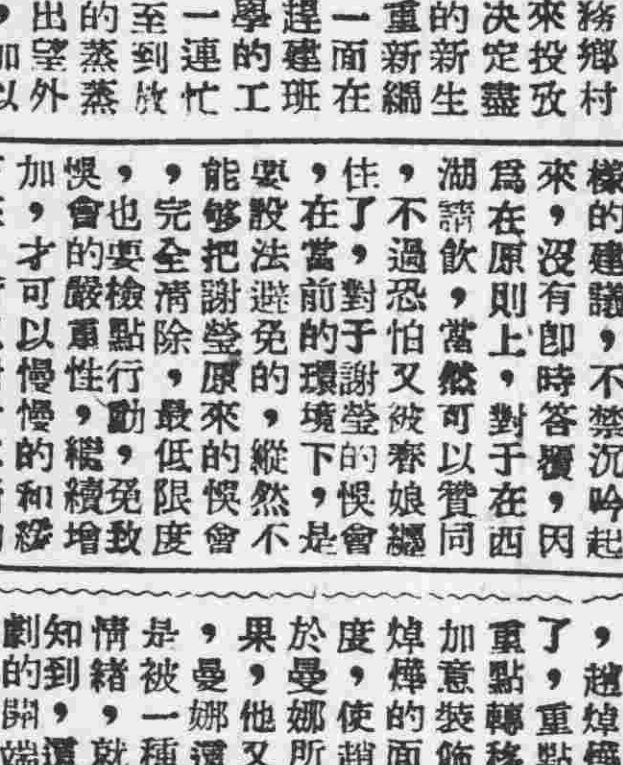 務鄉村
來投攷
决定盡
的新生
重新編
一面在
趕建班
學的工
一連忙
至到攷
的蒸蒸
出望外
樣的建議,不禁沉吟起
來,沒有卽時答覆,因
爲在原則上,對于在西
湖讌飲,當然可以贊同
,不過恐怕又被春娘纏
住了,對于謝瑩的悞會
,在當前的環境下,是
要設法避免的,縱然不
能够把謝瑩原來的悞會
,完全清除,最低限度
,也要檢點行動,免致
悞會的嚴重性,繼續增
加,才可以慢慢的和緩
,趙焯燁
了,重點
重點轉移
加意裝飾
焯燁的面
度,使趙
於曼娜所
果,他又
,曼娜還
是被一種
情緒,就
知到,還
劇的開端